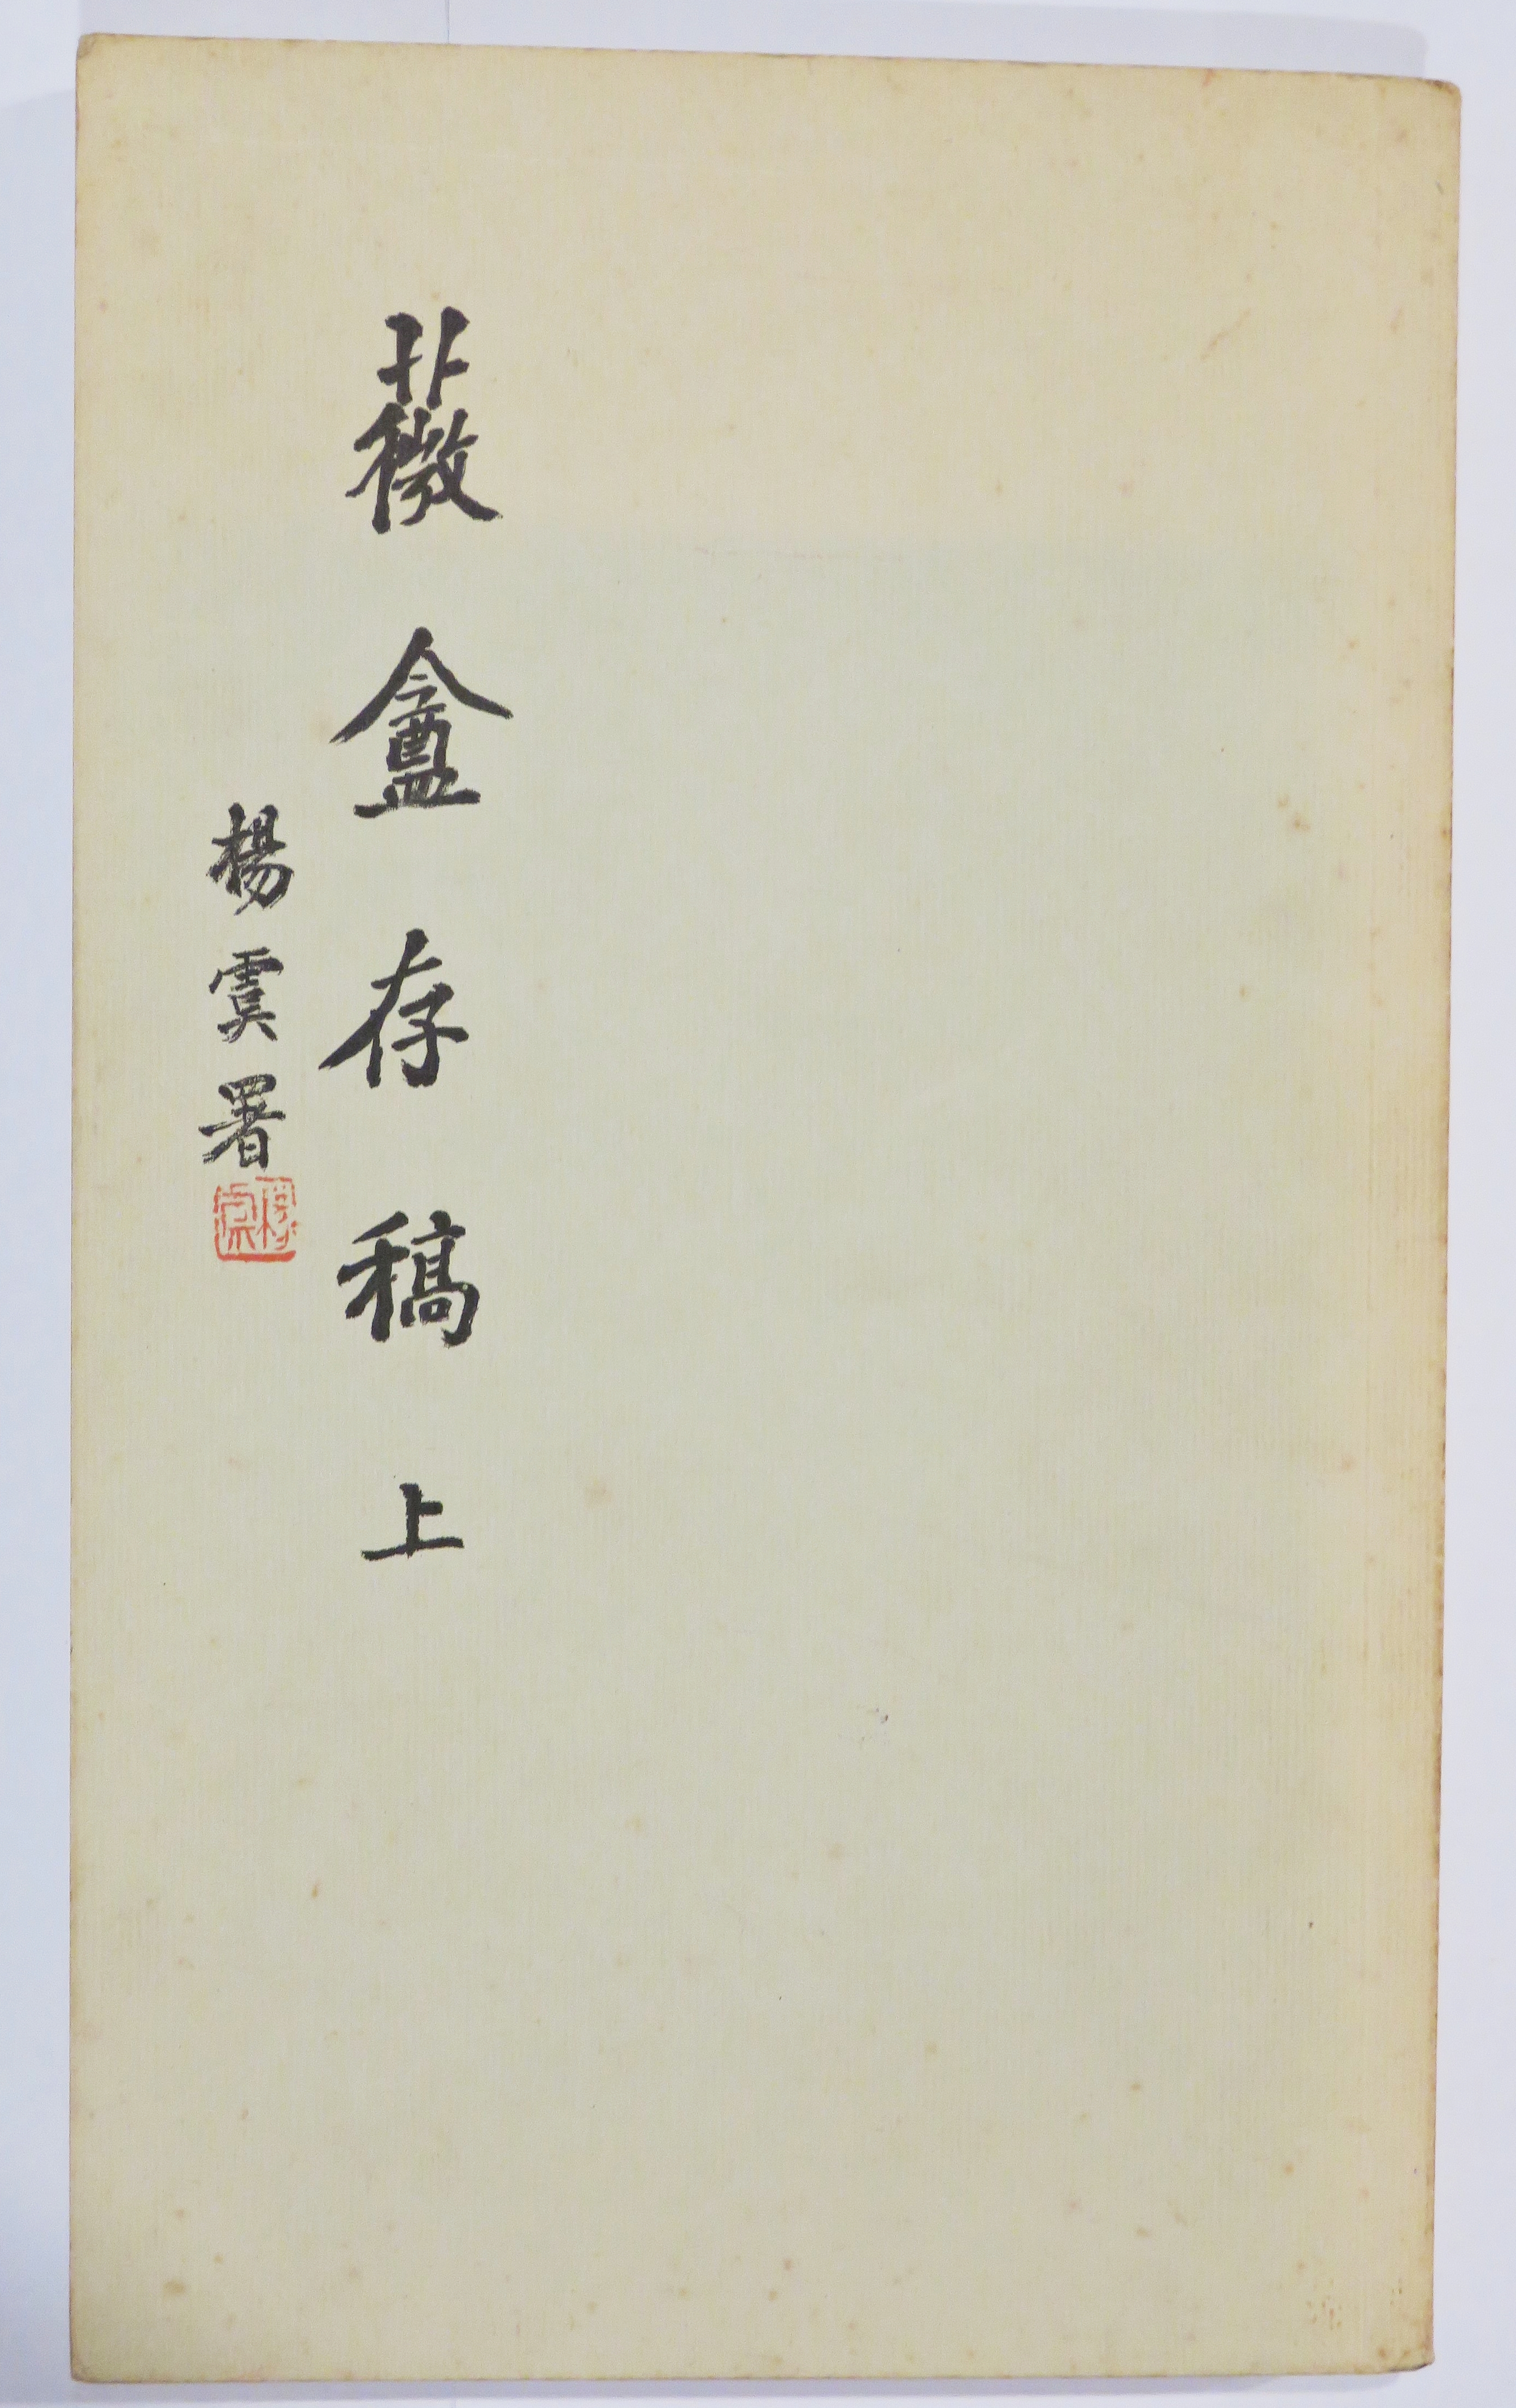 薇盦存稿上
楊虞署